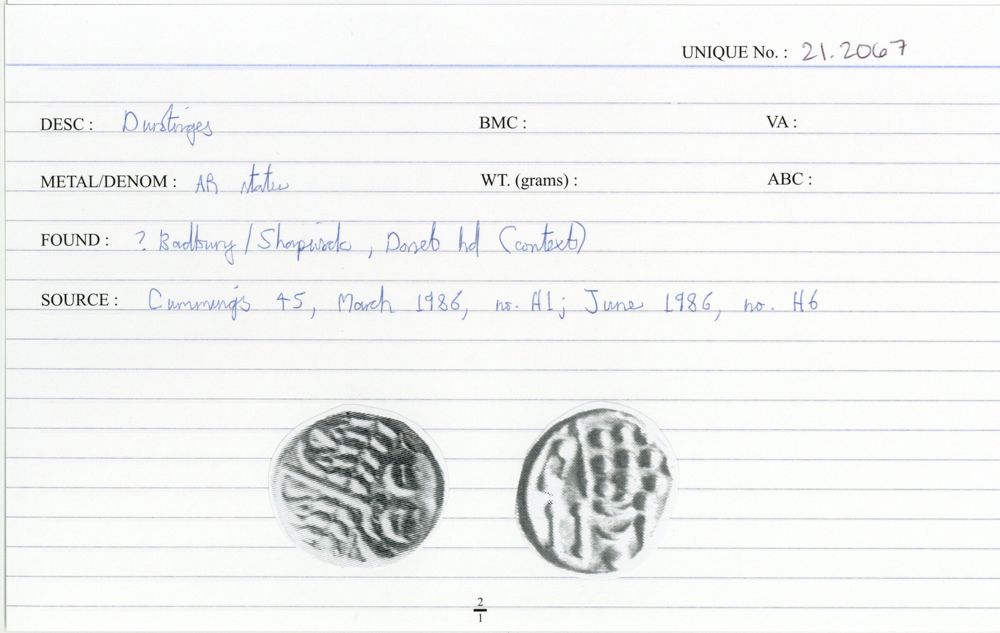 UNIQUE No. : 21.2067
DESC : Durotriges BMC : VA :
METAL/DENOM : AR stater WT. (grams) : ABC :
FOUND : ? Badbury / Shapwick, Dorset hd (context)
SOURCE : Cummings 45, March 1986, no. A1; June 1986, no. H6
2
1